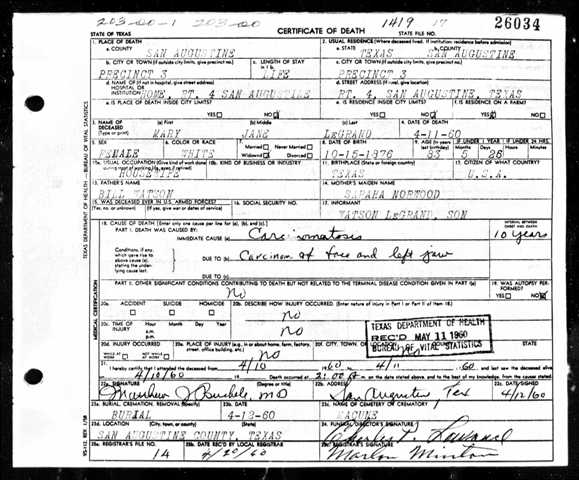 203-20-1 203-20 1419 17
STATE OF TEXAS CERTIFICATE OF DEATH STATE FILE NO. 26034
1. PLACE OF DEATH 2. USUAL RESIDENCE (Where deceased lived. If institution: residence before admission)
a. COUNTY SAN AUGUSTINE a. STATE TEXAS b. COUNTY SAN AUGUSTINE
b. CITY OR TOWN (If outside city limits, give precinct no.) c. LENGTH OF STAY in 1 b. c. CITY OR TOWN (If outside city limits, give precinct no.)
PRECINCT 3 LIFE PRECINCT 3
d. NAME OF (If not in hospital, give street address) HOSPITAL OR INSTITUTION HOME, RT. 4 SAN AUGUSTINE d. STREET ADDRESS (If rural, give location) RT. 4, SAN AUGUSTINE, TEXAS
e. IS PLACE OF DEATH INSIDE CITY LIMITS? YES NO e. IS RESIDENCE INSIDE CITY LIMITS? YES NO f. IS RESIDENCE ON A FARM? YES NO
3. NAME OF DECEASED (Type or print) (a) First (b) Middle (c) Last 4. DATE OF DEATH
MARY JANE LeGRAND 4-11-60
5. SEX 6. COLOR OR RACE 7. Married Never Married Widowed Divorced 8. DATE OF BIRTH 9. AGE (In years last birthday) IF UNDER 1 YEAR IF UNDER 24 HRS.
FEMALE WHITE 10-15-1876 83 5 26
10a. USUAL OCCUPATION (Give kind of work done during most of working life, even if retired) 10b. KIND OF BUSINESS OR INDUSTRY 11. BIRTHPLACE (State or foreign country) 12. CITIZEN OF WHAT COUNTRY?
HOUSEWIFE TEXAS U.S.A.
13. FATHER'S NAME 14. MOTHER'S MAIDEN NAME
BILL WATSON SAHARA NORWOOD
15. WAS DECEASED EVER IN U.S. ARMED FORCES? 16. SOCIAL SECURITY NO. 17. INFORMANT
(Yes, no, or unknown) (If yes, give war or dates of service) WATSON LeGRAND, SON
18. CAUSE OF DEATH (Enter only one cause per line for (a), (b), and (c).) INTERVAL BETWEEN ONSET AND DEATH
PART I. DEATH WAS CAUSED BY: IMMEDIATE CAUSE (a) Carcinomatosis 10 years
Conditions, if any, which gave rise to above cause (a), stating the underlying cause last. DUE TO (b) Carcinoma of face and left jaw
DUE TO (c)
PART II. OTHER SIGNIFICANT CONDITIONS CONTRIBUTING TO DEATH BUT NOT RELATED TO THE TERMINAL DISEASE CONDITION GIVEN IN PART I(a) 19. WAS AUTOPSY PERFORMED?
No YES NO
20a. ACCIDENT SUICIDE HOMICIDE 20b. DESCRIBE HOW INJURY OCCURRED. (Enter nature of injury in Part I or Part II of item 18.)
No
20c. TIME OF INJURY Hour Month Day Year a.m. p.m. No
TEXAS DEPARTMENT OF HEALTH
REC'D MAY 11 1960
BUREAU OF VITAL STATISTICS
20d. INJURY OCCURRED WHILE AT WORK NOT WHILE AT WORK 20e. PLACE OF INJURY (e.g., in or about home, farm, factory, street, office building, etc.) No 20f. CITY, TOWN, OR LOCATION No
21. I hereby certify that I attended the deceased from 4/10 1960 to 4/11 1960
4/10/60 Death occurred at 2:00 m. on the date stated above, and to the best of my knowledge, from the causes stated.
22a. SIGNATURE (Degree or title) 22b. ADDRESS 22c. DATE SIGNED
M.D. San Augustine, Tex 4/12/60
23a. BURIAL, CREMATION, REMOVAL (Specify) 23b. DATE 23c. NAME OF CEMETERY OR CREMATORY
BURIAL 4-12-60 MACUNE
23d. LOCATION (City, town, or county) (State) 24. FUNERAL DIRECTOR'S SIGNATURE
SAN AUGUSTINE COUNTY, TEXAS
25a. REGISTRAR'S FILE NO. 25b. DATE REC'D BY LOCAL REGISTRAR 25c. REGISTRAR'S SIGNATURE
14 4/20/60 Marlon Minton
TEXAS DEPARTMENT OF HEALTH — BUREAU OF VITAL STATISTICS
MEDICAL CERTIFICATION